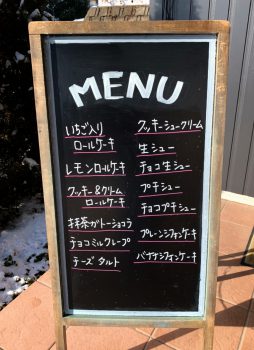 MENU
いちご入り
ロールケーキ
レモンロールケーキ
クッキー&クリーム
ロールケーキ
抹茶ガトーショコラ
チョコミルクレープ
チーズタルト
クッキーシュークリーム
生シュー
チョコ生シュー
プチシュー
チョコプチシュー
プレーンシフォンケーキ
バナナシフォンケーキ